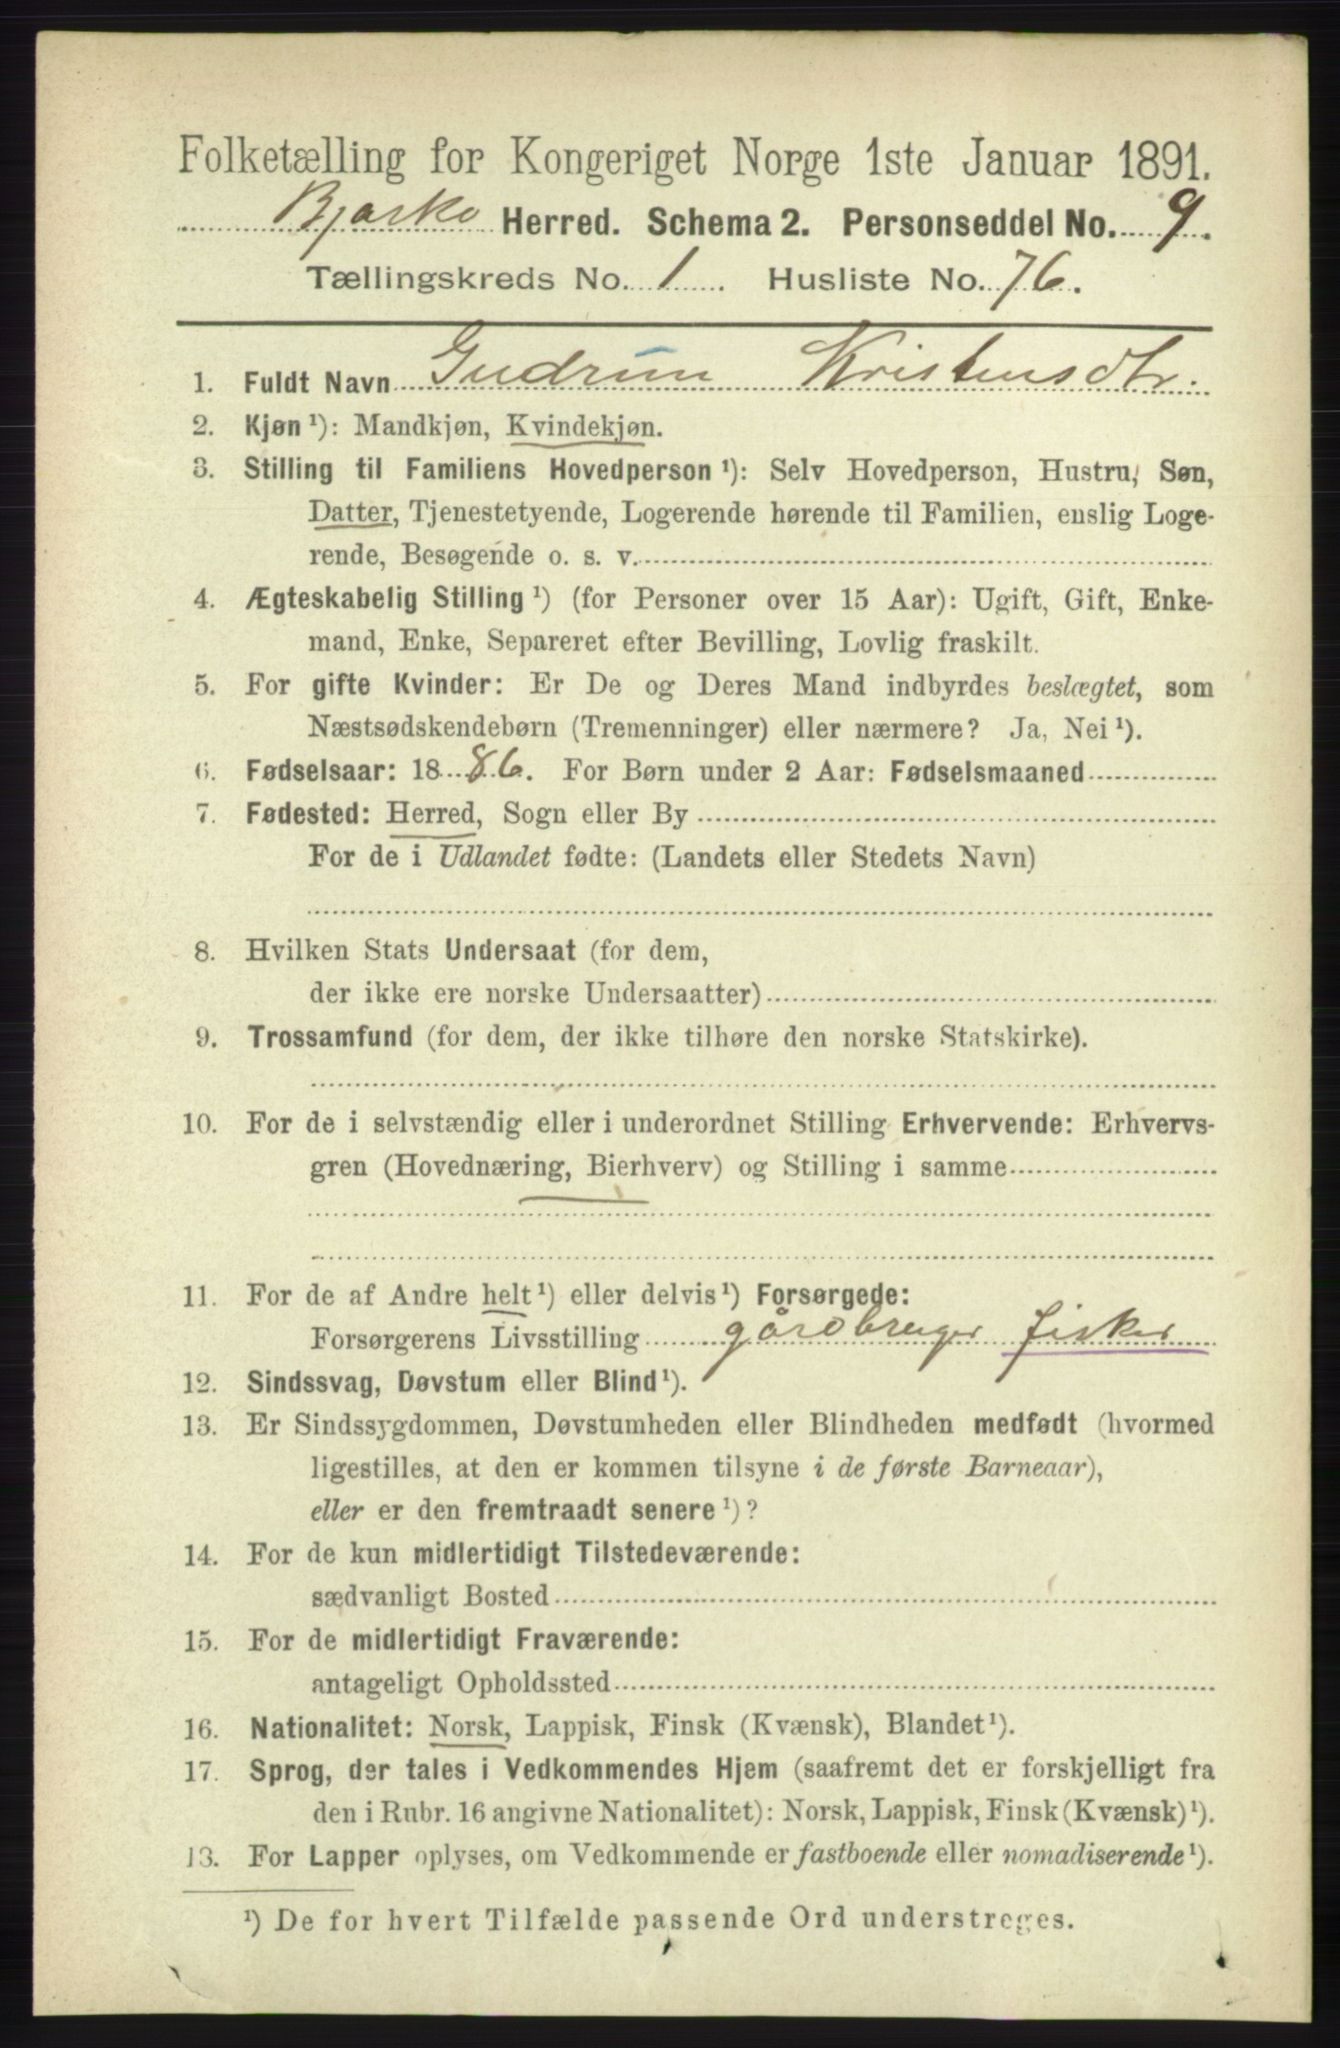 Folketælling for Kongeriget Norge 1ste Januar 1891.
Bjarkø Herred. Schema 2. Personseddel No. 9.
Tællingskreds No. 1 Husliste No. 76.
1. Fuldt Navn Gudrun Kristensdtr.
2. Kjøn ¹): Mandkjøn, Kvindekjøn.
3. Stilling til Familiens Hovedperson ¹): Selv Hovedperson, Hustru, Søn,
Datter, Tjenestetyende, Logerende hørende til Familien, enslig Loge-
rende, Besøgende o. s. v.
4. Ægteskabelig Stilling ¹) (for Personer over 15 Aar): Ugift, Gift, Enke-
mand, Enke, Separeret efter Bevilling, Lovlig fraskilt.
5. For gifte Kvinder: Er De og Deres Mand indbyrdes beslægtet, som
Næstsødskendebørn (Tremenninger) eller nærmere? Ja, Nei ¹).
6. Fødselsaar: 1886. For Børn under 2 Aar: Fødselsmaaned
7. Fødested: Herred, Sogn eller By
For de i Udlandet fødte: (Landets eller Stedets Navn)
8. Hvilken Stats Undersaat (for dem,
der ikke ere norske Undersaatter)
9. Trossamfund (for dem, der ikke tilhøre den norske Statskirke).
10. For de i selvstændig eller i underordnet Stilling Erhvervende: Erhvervs-
gren (Hovednæring, Bierhverv) og Stilling i samme
11. For de af Andre helt ¹) eller delvis ¹) Forsørgede:
Forsørgerens Livsstilling gårdbruger fisker
12. Sindssvag, Døvstum eller Blind ¹).
13. Er Sindssygdommen, Døvstumheden eller Blindheden medfødt (hvormed
ligestilles, at den er kommen tilsyne i de første Barneaar),
eller er den fremtraadt senere ¹)?
14. For de kun midlertidigt Tilstedeværende:
sædvanligt Bosted
15. For de midlertidigt Fraværende:
antageligt Opholdssted
16. Nationalitet: Norsk, Lappisk, Finsk (Kvænsk), Blandet ¹).
17. Sprog, der tales i Vedkommendes Hjem (saafremt det er forskjelligt fra
den i Rubr. 16 angivne Nationalitet): Norsk, Lappisk, Finsk (Kvænsk) ¹).
13. For Lapper oplyses, om Vedkommende er fastboende eller nomadiserende ¹).
¹) De for hvert Tilfælde passende Ord understreges.